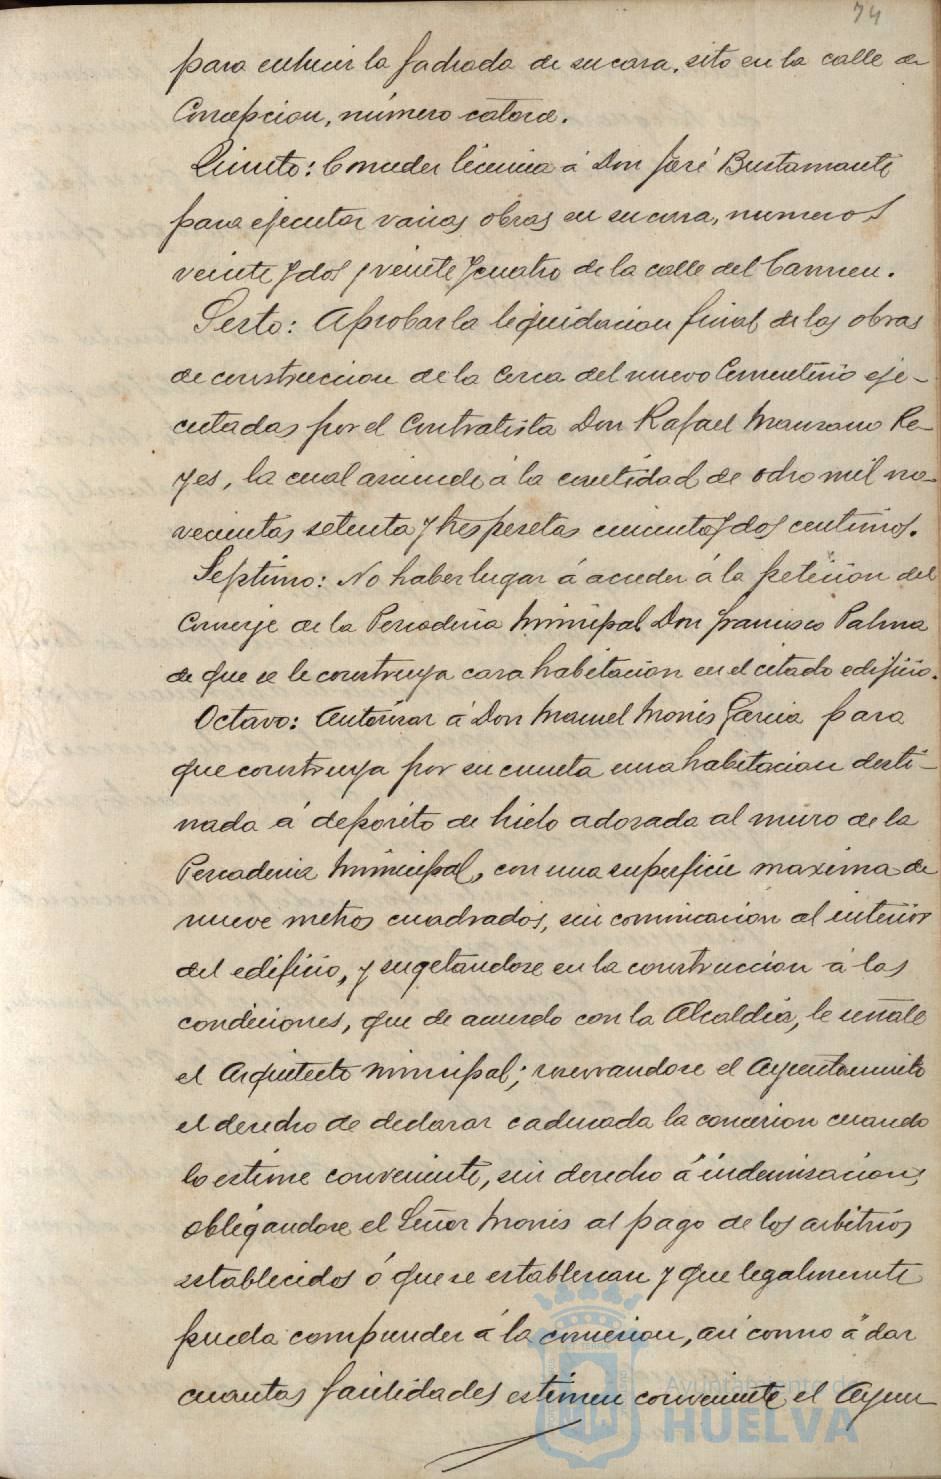 74
para enlucir la fachada de su casa, sito en la calle de
Concepcion, número catorce.
Quinto: Conceder licencia á Don José Bustamante
para ejecutar varias obras en su casa, numeros
veinte y dos y veinte y cuatro de la calle del Carmen.
Sesto: Aprobar la liquidacion final de las obras
de construccion de la cerca del nuevo Cementerio eje-
cutadas por el Contratista Don Rafael Manzano Re-
yes, la cual asciende á la cantidad de ocho mil no-
vecientas setenta y tres pesetas cincuenta y dos centimos.
Septimo: No haber lugar á acceder á la peticion del
Conserje de la Pescaderia Municipal Don Francisco Palma
de que se le construya casa habitacion en el citado edificio.
Octavo: Autorizar á Don Manuel Monis Garcia para
que construya por su cuenta una habitacion desti-
nada á deposito de hielo adosada al muro de la
Pescaderia Municipal, con una superficie maxima de
nueve metros cuadrados, sin comunicacion al interior
del edificio, y sugetandose en la construccion á las
condiciones, que de acuerdo con la Alcaldia, le señale
el Arquitecto Municipal; reservandose el Ayuntamiento
el derecho de declarar caducada la concesion cuando
lo estime conveniente, sin derecho á indemnisacion;
obligandose el Señor Monis al pago de los arbitrios
establecidos ó que se establezcan y que legalmente
pueda comprender á la concesion, asi como á dar
cuantas facilidades estimen conveniente el Ayun
Ayuntamiento de
HUELVA